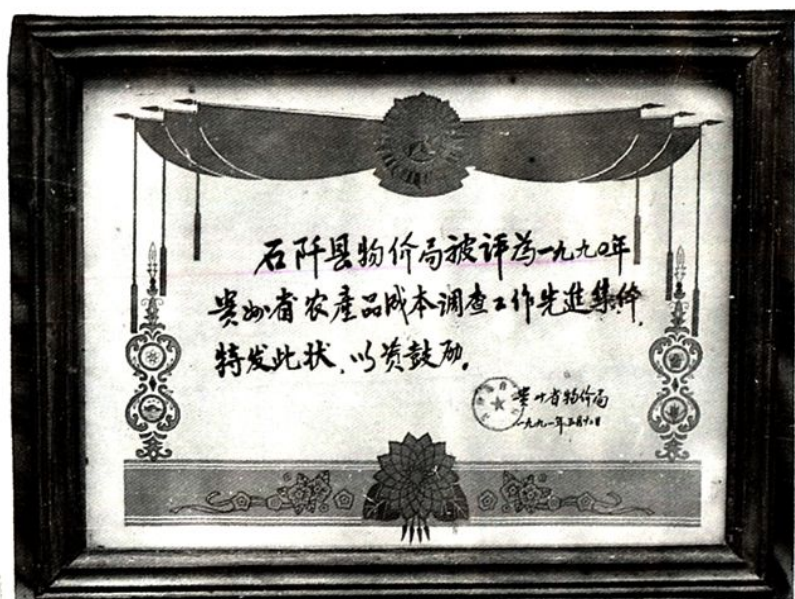 石阡县物价局被评为一九九〇年
贵州省农產品成本调查工作先進集体,
特发此状、以资鼓励。
贵州省物价局
一九九一年五月十日